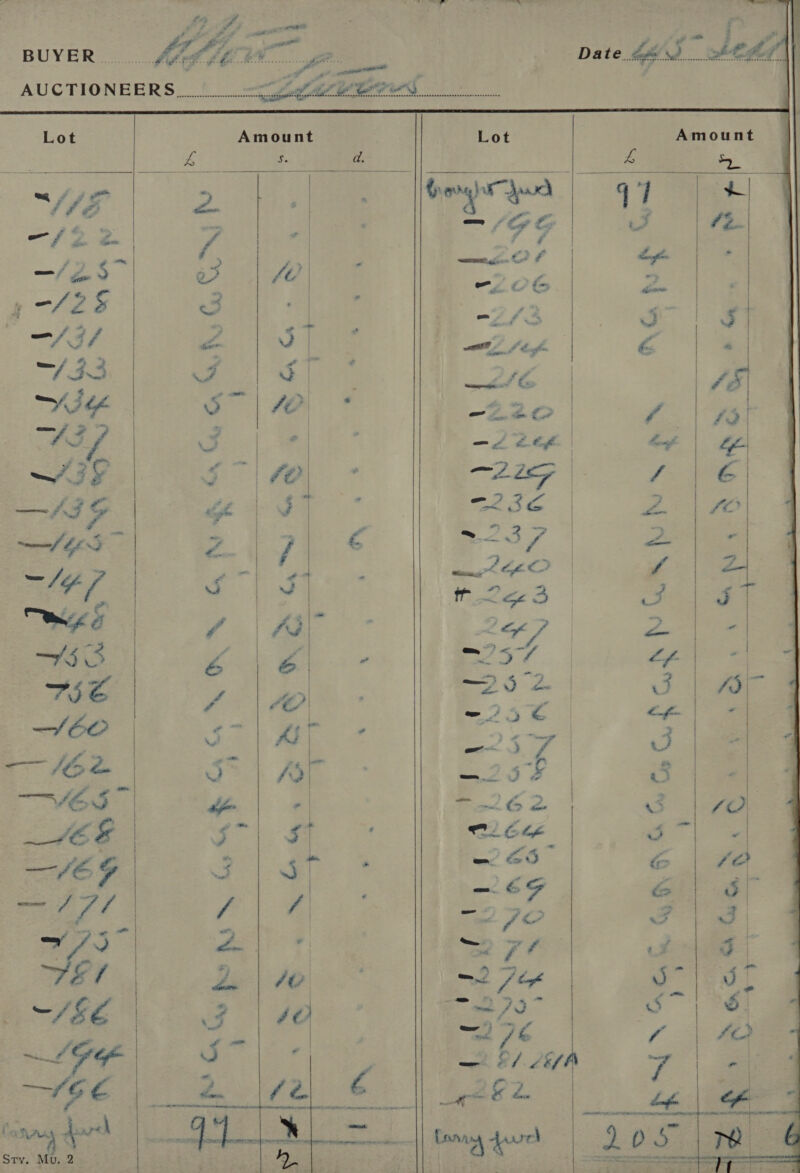 BUYER
Date
AUCTIONEERS
Lot Amount Lot Amount
£ s. d. £ s
118 2 - - brought fwd 97
122 7 - - 199 3 12
125 3 10 - 201 4 -
128 3 - - 206 2 -
131 2 5 - 213 5 5
133 3 5 - 214 6 -
134 5 10 - 216 18
137 3 - - 220 1 15
138 5 10 - 224 4 4
139 4 5 - 229 1 6
145 2 7 6 236 2 10
147 5 5 - 237 2 -
148 1 15 - 240 1 2
153 6 6 - 243 3 5
156 1 10 - 247 2 -
160 5 15 - 251 4 -
162 5 15 252 3 15
165 4 - 256 4 -
168 5 5 257 3 -
169 3 5 - 258 3 -
171 1 1 - 262 3 10
175 2 - 264 5 -
181 2 10 265 6 10
186 3 10 269 6 5
194 5 - 270 3 3
196 2 12 6 271 3 5
274 5 5
275 5 5
276 1 10
281 281A 7 -
282 4 4
Carry fwd 97 - Carry fwd 205
Sty. Mu. 2